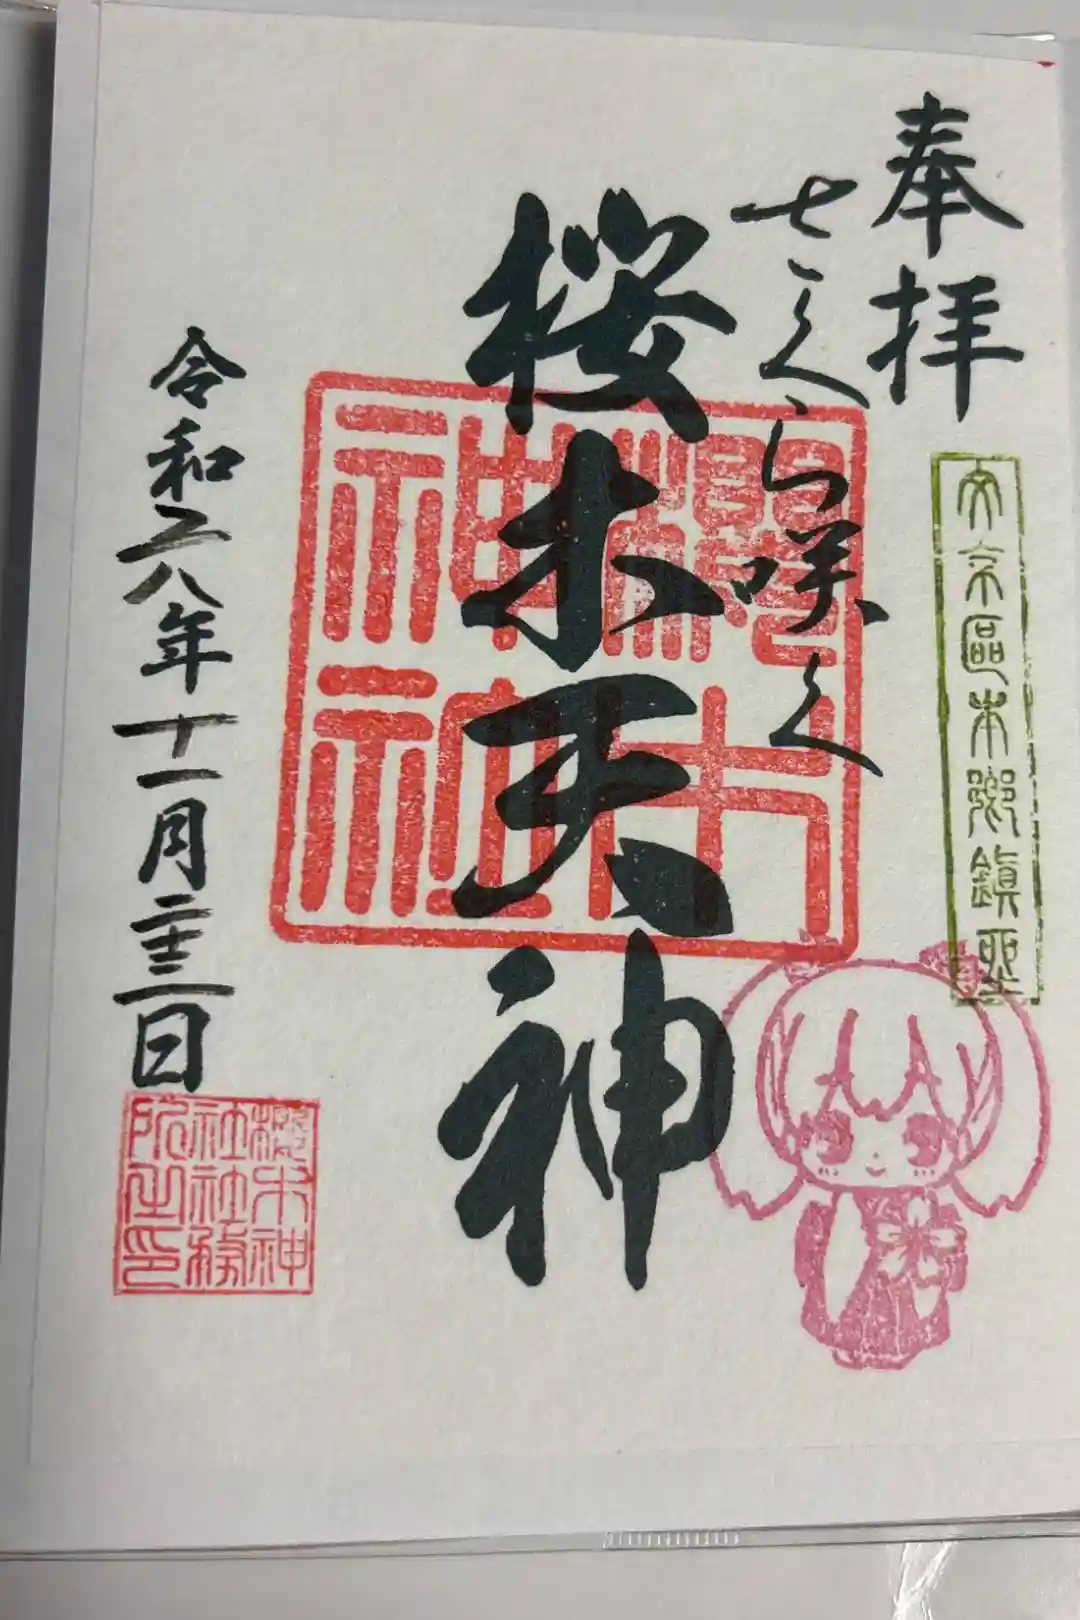 奉拝
文京區本郷鎮聖
さくら咲く
桜木天神
櫻木
神社
令和六年十一月二十三日
櫻木神
社社務
所之印